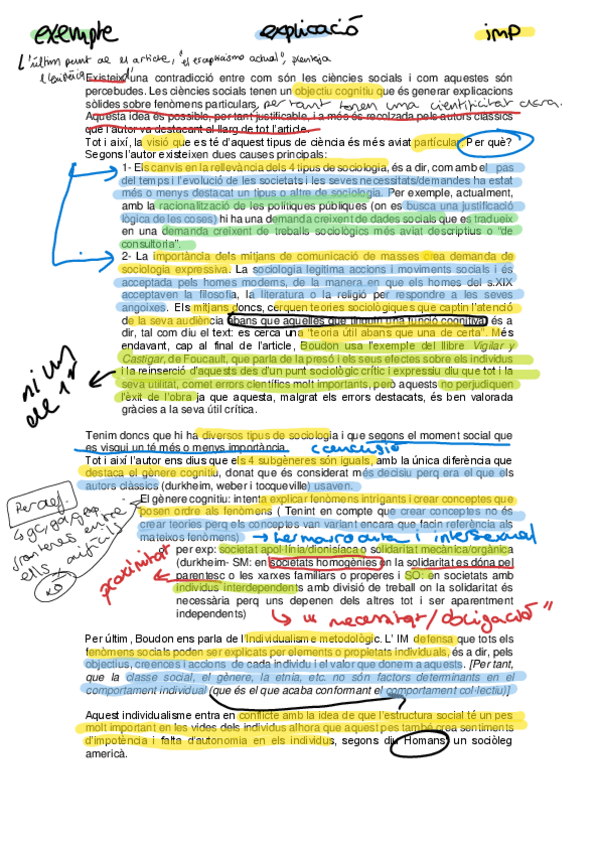 exemple explicació imp
L'últim punt de el article, "el escepticisme actual", planteja
Existeix una contradicció entre com són les ciències socials i com aquestes són
percebudes. Les ciències socials tenen un objectiu cognitiu que és generar explicacions
sòlides sobre fenòmens particulars, per tant tenen una cientificitat clara.
Aquesta idea és possible, per tant justificable, i a més és recolzada pels autors clàssics
que l'autor va destacant al llarg de tot l'article.
Tot i així, la visió que es té d'aquest tipus de ciència és més aviat particular. Per què?
Segons l'autor existeixen dues causes principals:
1- Els canvis en la rellevància dels 4 tipus de sociologia, és a dir, com amb el pas
del temps i l'evolució de les societats i les seves necessitats/demandes ha estat
més o menys destacat un tipus o altre de sociologia. Per exemple, actualment,
amb la racionalització de les polítiques públiques (on es busca una justificació
lògica de les coses) hi ha una demanda creixent de dades socials que es tradueix
en una demanda creixent de treballs sociològics més aviat descriptius o "de
consultoria".
2- La importància dels mitjans de comunicació de masses crea demanda de
sociologia expressiva. La sociologia legitima accions i moviments socials i és
acceptada pels homes moderns, de la manera en que els homes del s.XIX
acceptaven la filosofia, la literatura o la religió per respondre a les seves
angoixes. Els mitjans doncs, cerquen teories sociològiques que captin l'atenció
de la seva audiència abans que aquelles que tinguin una funció cognitiva, és a
dir, tal com diu el text: es cerca una "teoria útil abans que una de certa". Més
endavant, cap al final de l'article, Boudon usa l'exemple del llibre Vigilar y
Castigar, de Foucault, que parla de la presó i els seus efectes sobre els individus
i la reinserció d'aquests des d'un punt sociològic crític i expressiu diu que tot i la
seva utilitat, comet errors científics molt importants, però aquests no perjudiquen
l'èxit de l'obra ja que aquesta, malgrat els errors destacats, és ben valorada
gràcies a la seva útil crítica.
Tenim doncs que hi ha diversos tipus de sociologia i que segons el moment social que
es visqui un té més o menys importància.
Tot i així l'autor ens dius que els 4 subgèneres són iguals, amb la única diferència que
destaca el gènere cognitiu, donat que és considerat més decisiu pero era el que els
autors clàssics (durkheim, weber i tocqueville) usaven.
Per def.
El gènere cognitiu: intenta explicar fenòmens intrigants i crear conceptes que
posen ordre als fenòmens ( Tenint en compte que crear conceptes no és
crear teories perq els conceptes van variant encara que facin referència als
mateixos fenòmens)
per exp: societat apol·línia/dionisíaca o solidaritat mecànica/orgànica
(durkheim- SM: en societats homogènies en la solidaritat es dóna pel
parentesc o les xarxes familiars o properes i SO: en societats amb
individus interdependents amb divisió de treball on la solidaritat és
necessària perq uns depenen dels altres tot i ser aparentment
independents)
proximitat
"necessitat/obligació"
Per últim, Boudon ens parla de l'individualisme metodològic. L' IM defensa que tots els
fenòmens socials poden ser explicats per elements o propietats individuals, és a dir, pels
objectius, creences i accions de cada individu i el valor que donem a aquests. [Per tant,
que la classe social, el gènere, la etnia, etc. no són factors determinants en el
comportament individual (que és el que acaba conformant el comportament col·lectiu)]
Aquest individualisme entra en conflicte amb la idea de que l'estructura social té un pes
molt important en les vides dels individus alhora que aquest pes també crea sentiments
d'impotència i falta d'autonomia en els individus, segons diu Homans, un sociòleg
americà.